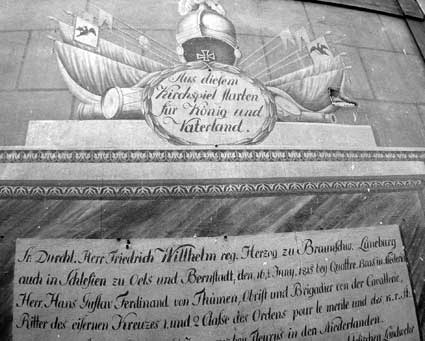 Aus diesem
Kirchspiel starben
für König und
Vaterland.
Sr. Durchl. Herr Friedrich Willhelm reg. Herzog zu Braunschw. Lüneburg
auch in Schlesien zu Oels und Bernstadt, den 16. Juny, 1815 bey Quattre Bras in
Herr Hans Gustav Ferdinand von Thümen, Obrist und Brigadier von der Cavallerie,
Ritter des eisernen Kreuzes 1. und 2 Classe des Ordens pour le merite und des
bey Fleurus in den Niederlanden.
Landwehr